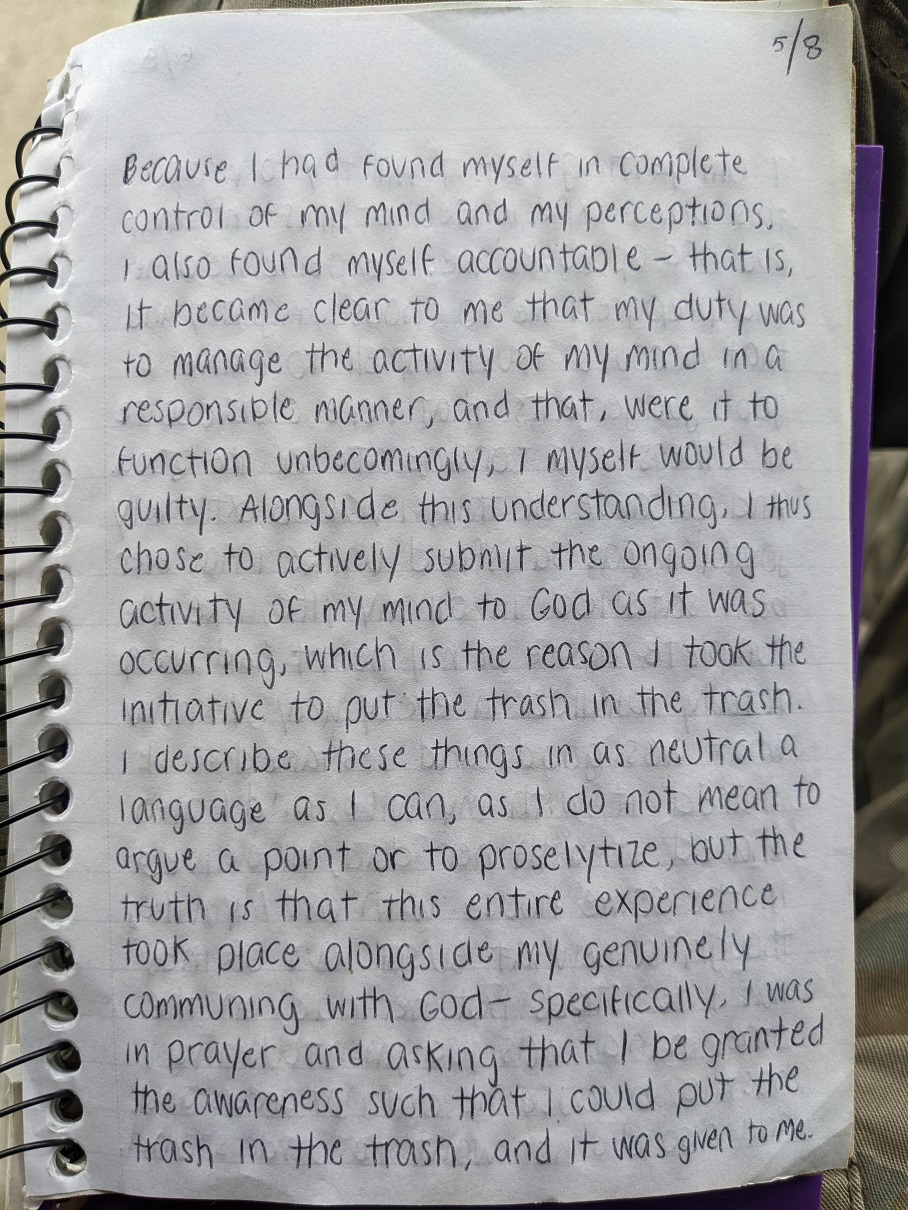 5/8
Because I had found myself in complete
control of my mind and my perceptions,
I also found myself accountable – that is,
it became clear to me that my duty was
to manage the activity of my mind in a
responsible manner, and that, were it to
function unbecomingly, I myself would be
guilty. Alongside this understanding, I thus
chose to actively submit the ongoing
activity of my mind to God as it was
occurring, which is the reason I took the
initiative to put the trash in the trash.
I describe these things in as neutral a
language as I can, as I do not mean to
argue a point or to proselytize, but the
truth is that this entire experience
took place alongside my genuinely
communing with God – specifically, I was
in prayer and asking that I be granted
the awareness such that I could put the
trash in the trash, and it was given to me.